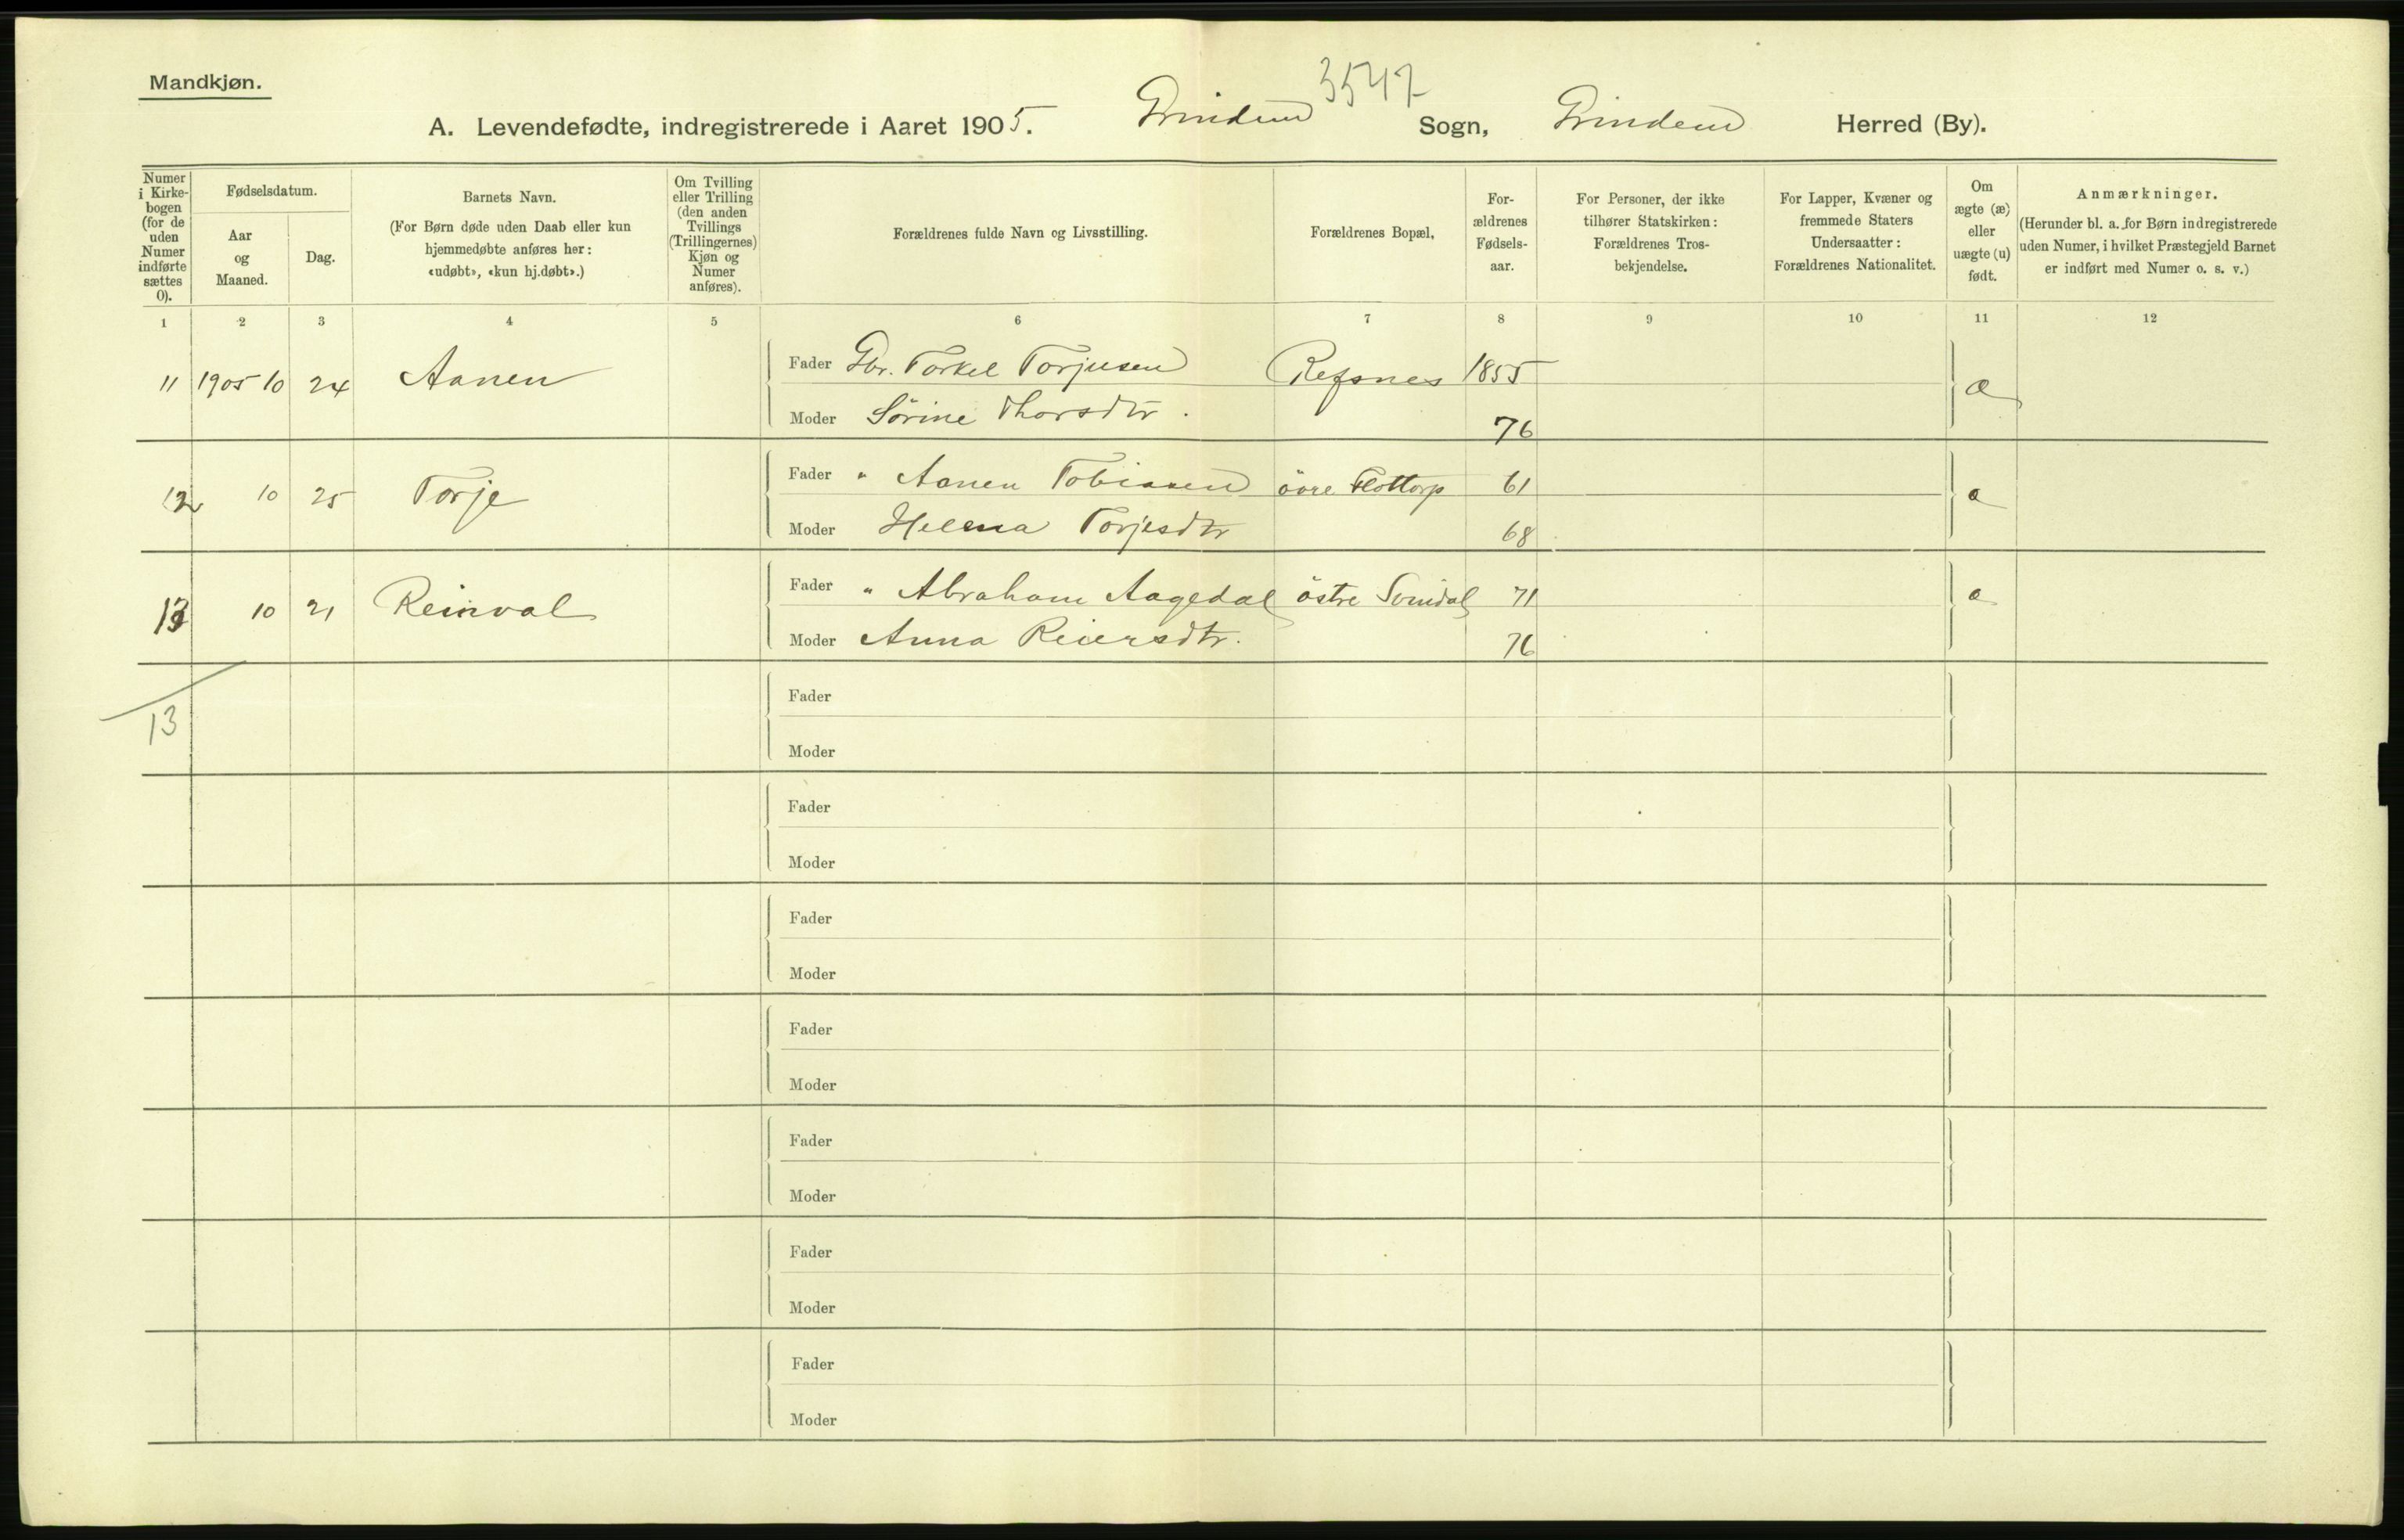 Mandkjøn.
3547
A. Levendefødte, indregistrerede i Aaret 1905. Grindum Sogn, Grindum Herred (By).
Numer i Kirkebogen (for de uden Numer indførte sættes 0).
Fødselsdatum.
Aar og Maaned.
Dag.
Barnets Navn.
(For Børn døde uden Daab eller kun hjemmedøbte anføres her: «udøbt», «kun hj.døbt».)
Om Tvilling eller Trilling (den anden Tvillings (Trillingernes) Kjøn og Numer anføres).
Forældrenes fulde Navn og Livsstilling.
Forældrenes Bopæl,
Forældrenes Fødselsaar.
For Personer, der ikke tilhører Statskirken: Forældrenes Trosbekjendelse.
For Lapper, Kvæner og fremmede Staters Undersaatter: Forældrenes Nationalitet.
Om ægte (æ) eller uægte (u) født.
Anmærkninger.
(Herunder bl. a. for Børn indregistrerede uden Numer, i hvilket Præstegjeld Barnet er indført med Numer o. s. v.)
1 2 3 4 5 6 7 8 9 10 11 12
11 1905 10 24 Aanen Fader Gbr. Torkel Torjusen Refsnes 1855 æ
Moder Sörine Thorsdtr. 76
12 10 25 Torje Fader " Aanen Tobiasen övre Flottorp 61 æ
Moder Helena Torjesdtr 68
13 10 21 Reinval Fader " Abraham Aagedal östre Svindal 71 æ
Moder Anna Reiersdtr. 76
13
Fader
Moder
Fader
Moder
Fader
Moder
Fader
Moder
Fader
Moder
Fader
Moder
Fader
Moder